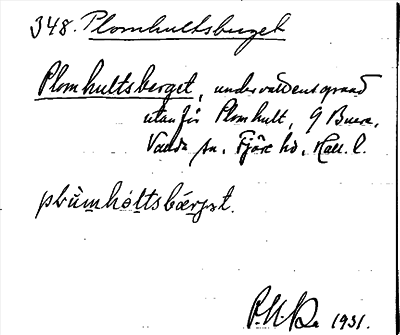 348. Plomhultsberget
Plomhultsberget, undervattensgrund
utanför Plomhult, 9 Buera,
Vallda sn. Fjäre hd. Hall. l.
1931.